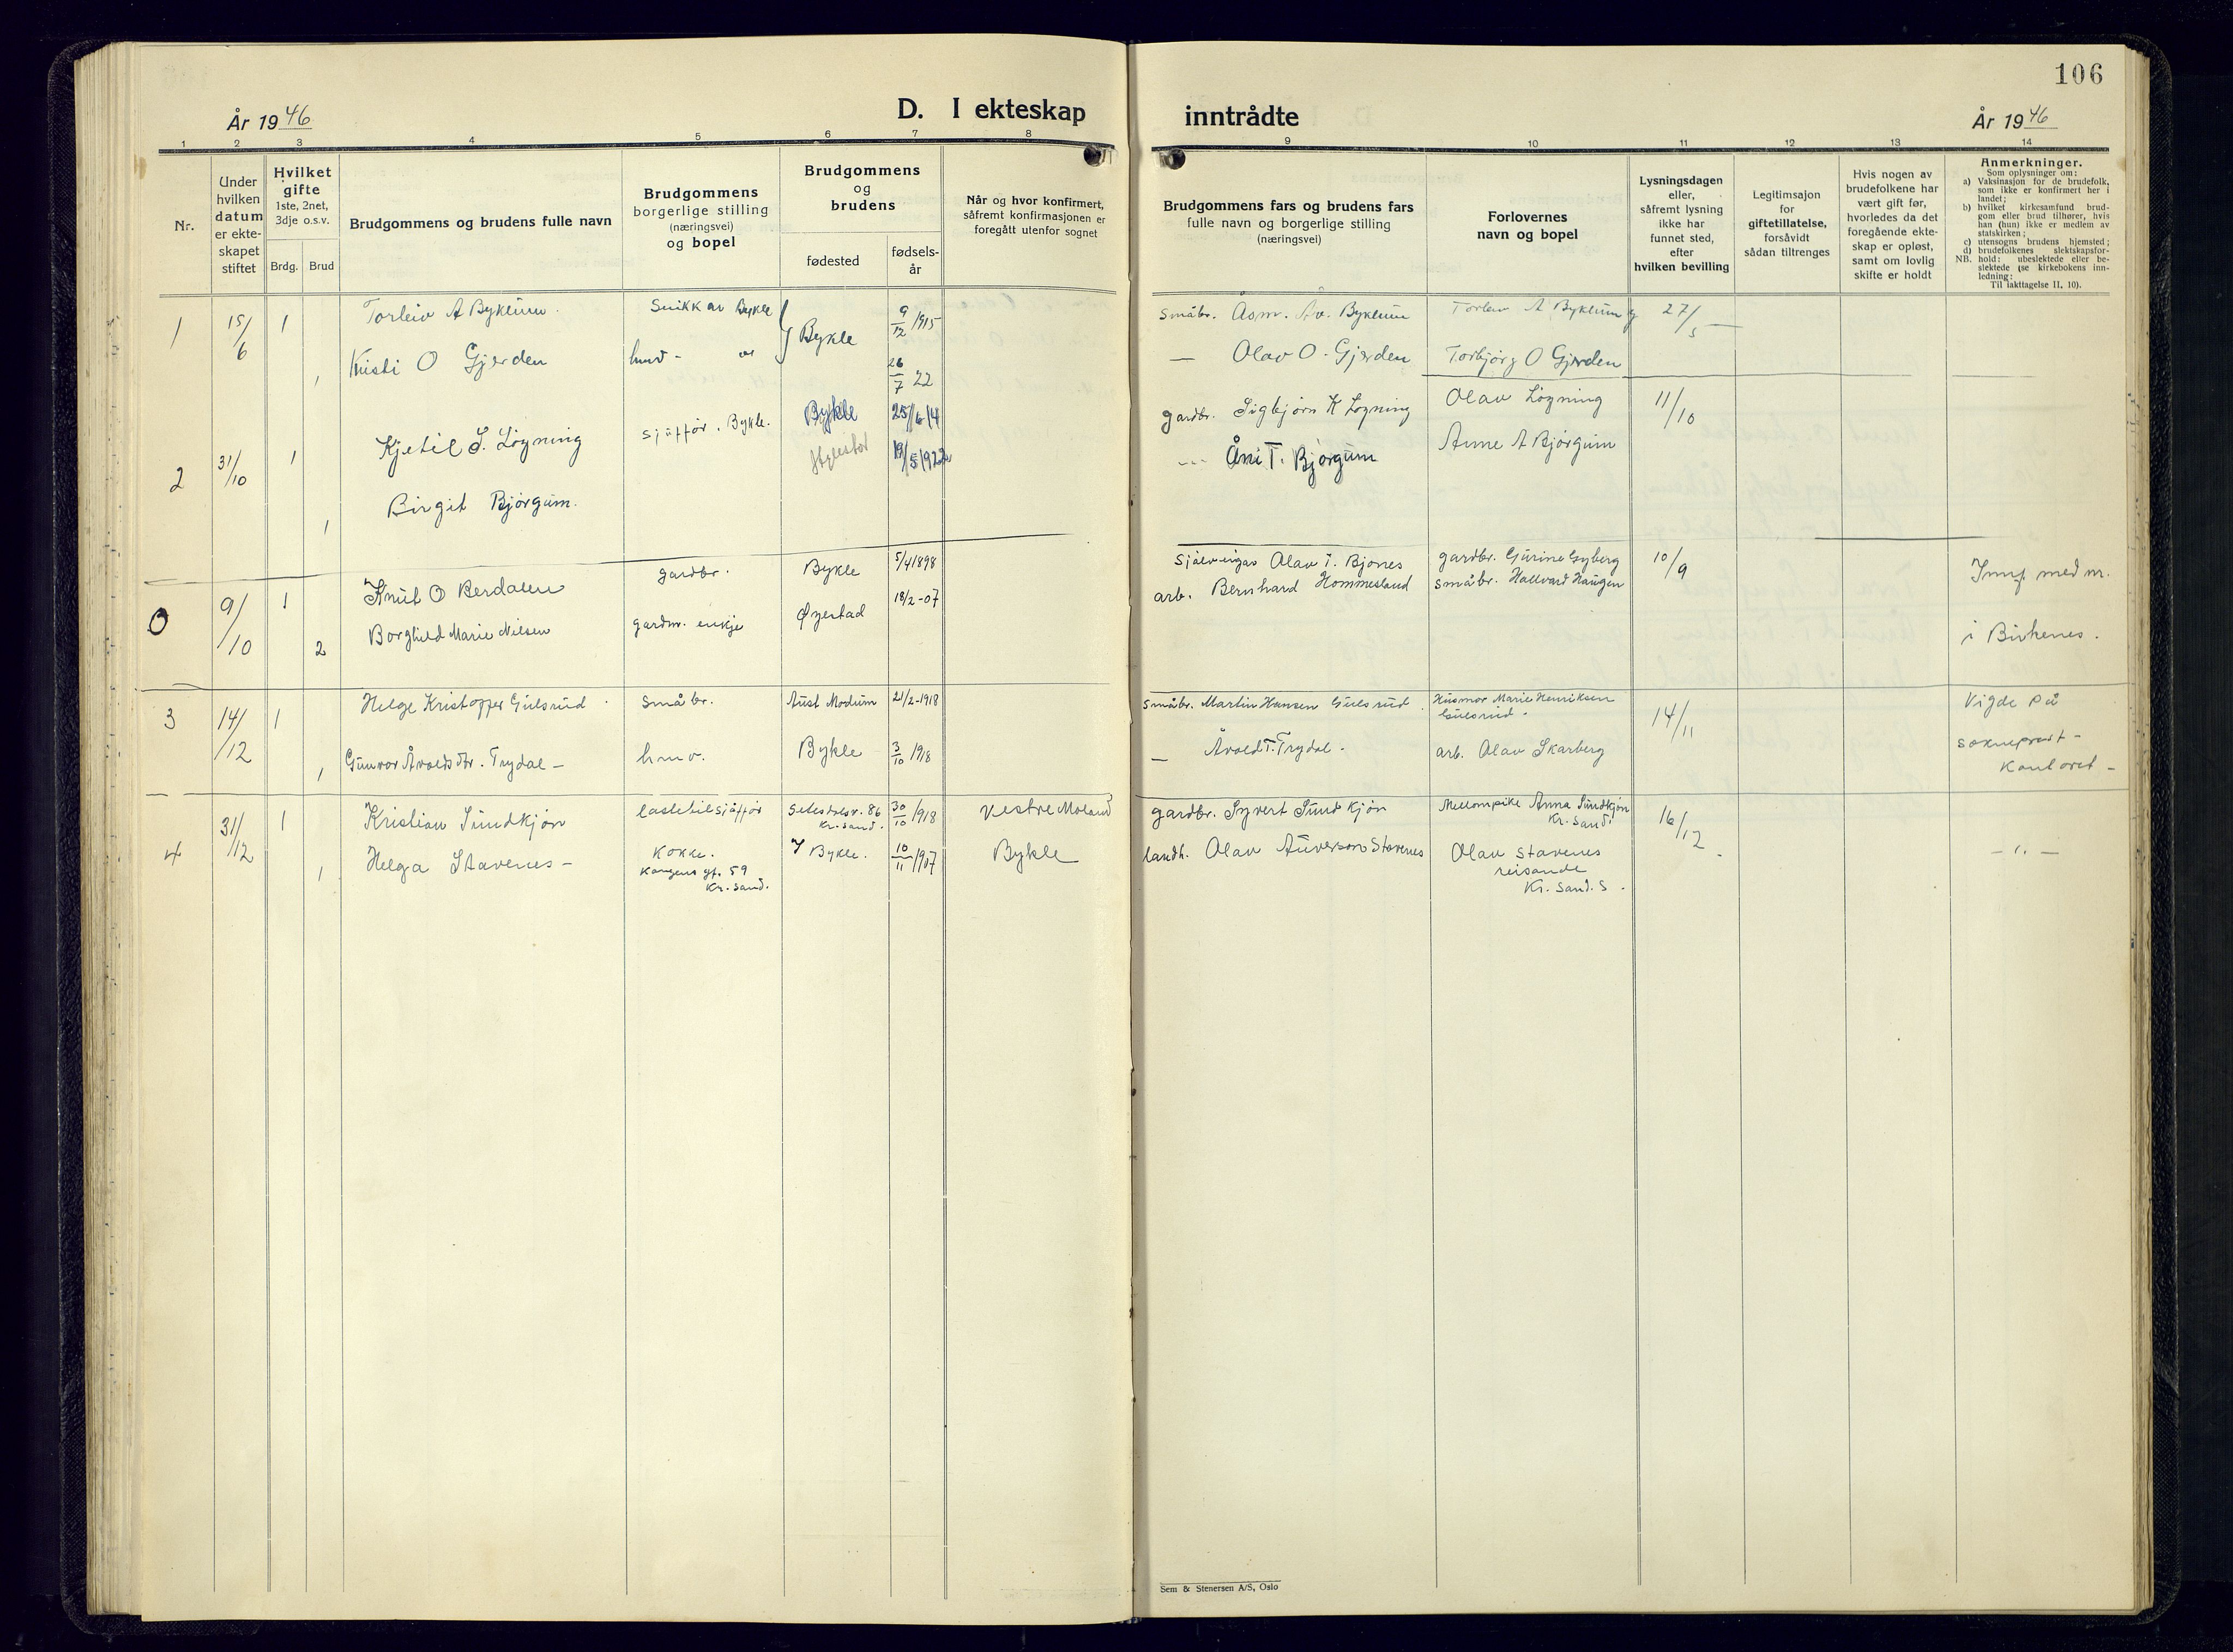 106
År 1946
D. I ekteskap
inntrådte
År 1946
1 2 3 4 5 6 7 8 9 10 11 12 13 14
Nr.
Under
hvilken
datum
er ekte-
skapet
stiftet
Hvilket
gifte
1ste, 2net,
3dje o.s.v.
Brdg. Brud
Brudgommens og brudens fulle navn
Brudgommens
borgerlige stilling
(næringsvei)
og bopel
Brudgommens
og
brudens
fødested
fødsels-
år
Når og hvor konfirmert,
såfremt konfirmasjonen er
foregått utenfor sognet
Brudgommens fars og brudens fars
fulle navn og borgerlige stilling
(næringsvei)
Forlovernes
navn og bopel
Lysningsdagen
eller,
såfremt lysning
ikke har
funnet sted,
efter
hvilken bevilling
Legitimsajon
for
giftetillatelse,
forsåvidt
sådan tiltrenges
Hvis nogen av
brudefolkene har
vært gift før,
hvorledes da det
foregående ekte-
skap er opløst,
samt om lovlig
skifte er holdt
Anmerkninger.
Som oplysninger om:
a) Vaksinasjon for de brudefolk,
som ikke er konfirmert her i
landet;
b) hvilket kirkesamfund brud-
gom eller brud tilhører, hvis
han (hun) ikke er medlem av
statskirken;
c) utensogns brudens hjemsted;
d) brudefolkenes slektskapsfor-
NB. hold: ubeslektede eller be-
slektede (se kirkebokens inn-
ledning:
Til iakttagelse II, 10).
1 15/6 1 Torleiv A Byklum. Snikkar Bykle Bykle 9/12 1915 småbr. Åsm. Av. Byklum Torleiv A Byklum 27/5
1 Kristi O Gjerden 26/7 22 — Olav O. Gjerden Torbjørg O Gjerden
2 31/10 1 Kjetil S. Løyning sjåffør. Bykle. Bykle 25/6 14 gardbr. Sigbjørn K Løyning Olav Løyning 11/10
1 Birgit Bjørgum. Hylestad 19/5 1922 Åni T. Bjørgum Anne A Bjørgum
0 9/10 1 Knut O Berdalen gardbr. Bykle 5/4 1898 Olav T. Bjones gardbr. Gurine Gyberg 10/9
2 Borghild Marie Nilsen gardm. enkje Øyestad 18/2-07 arb. Bernhard Hommesland småbr. Hallvard Haugen
Innf. med nr.
i Birkenes.
3 14/12 1 Helge Kristoffer Gulsrud småbr. Aust Modum 21/2-1918 småbr. Martin Hansen Gulsrud. Husmor Marie Henriksen
Gulsrud. 14/11 Vigde på
1 Gunvor Åvoldsdtr. Trydal — hmv. Bykle 3/10 1918 — Åvold T. Trydal. arb. Olav Skarberg sokneprest-
kontoret —
4 31/12 1 Kristian Sundkjøn lastebilsjåffør Setesdalsv. 86
Kr. sand. 30/10 1918 Vestre Moland gardbr. Syvert Sundkjøn Anna Sundkjøn
Kr. sand. 16/12
1 Helga Stavenes — Kokke.
Kongens gt. 59
Kr. sand. Bykle. 10/11 1907 Bykle landh. Olav Auverson Stavenes Olav Stavenes
reisande
Kr. sand. S. — " —
Sem & Stenersen A/S, Oslo